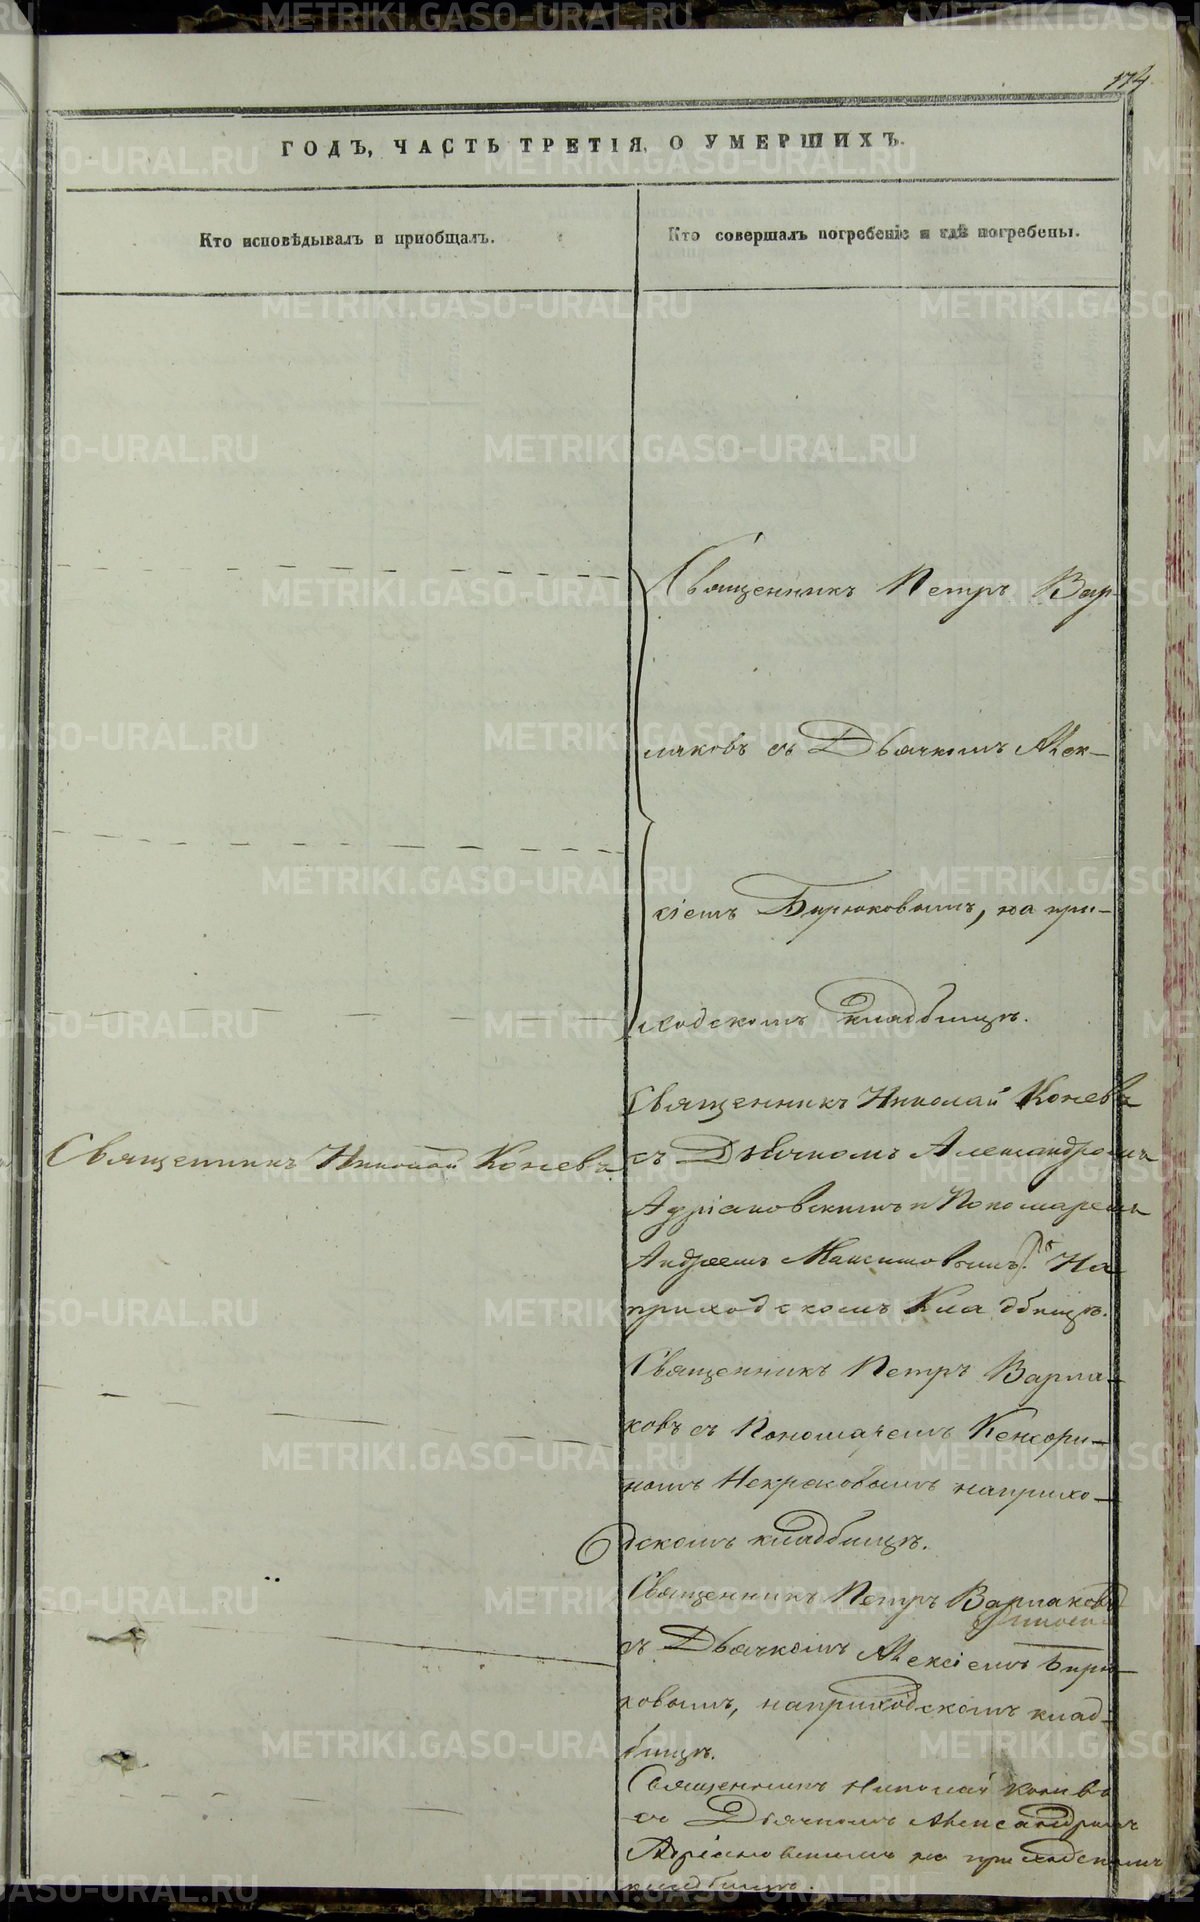 174
ГОДЪ, ЧАСТЬ ТРЕТІЯ, О УМЕРШИХЪ.
Кто исповѣдывалъ и пріобщалъ.
Кто совершалъ погребеніе и гдѣ погребены.
Священникъ Петръ Вар-
лаковъ съ Дьячкомъ Алек-
сіемъ Бирюковымъ, на при-
ходскомъ кладбищѣ.
Священникъ Николай Коневъ
Священникъ Николай Коневъ
съ Дьячкомъ Александромъ
Адріановскимъ и Пономаремъ
Андреемъ Максимовымъ. На
приходскомъ Кладбищѣ.
Священникъ Петръ Варла-
ковъ съ Пономаремъ Кенсори-
номъ Некрасовымъ на прихо-
дскомъ кладбищѣ.
Священникъ Петръ Варлаковъ
съ Дьячкомъ Алексіемъ Бирю-
ковымъ, на приходскомъ клад-
бищѣ.
Священникъ Николай Коневъ
съ Дьячкомъ Александромъ
Адріановскимъ на приходскомъ
кладбищѣ.
METRIKI.GASO-URAL.RU